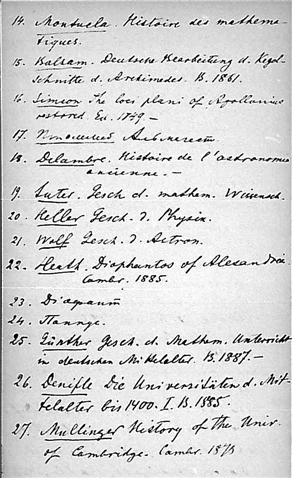 14. Montucla. Histoire des mathema-
tiques.
15. Balsam. Deutsche Bearbeitung d. Kegel-
schnitte d. Archimedes. B. 1861.
16. Simson The loci plani of Apollonius
restored. Ed. 1749 –
17.
18. Delambre. Histoire de l'astronomie
ancienne. –
19. Suter. Gesch d. mathem. Wissensch.
20. Heller Gesch. d. Physik.
21. Wolf Gesch. d. Astron.
22. Heath. Diophantos of Alexandria
Cambr. 1885.
23. Диофант
24. Паппус.
25. Günther Gesch. d. Mathem. Unterricht
in deutschen Mittelalter. B. 1887. –
26. Denifle Die Universitäten d. Mit-
telalter bis 1400. I. B. 1885.
27. Mullinger History of the Univ.
of Cambridge. Cambr. 1873